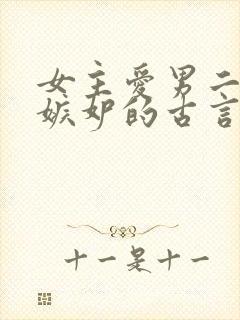 女主愛男二
嫉妒的古言
十一是十一